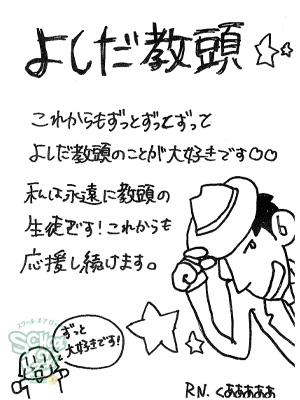 よしだ教頭☆☆
これからもずっとずっとずっと
よしだ教頭のことが大好きです♡♡
私は永遠に教頭の
生徒です!これからも
応援し続けます。
ずっと
大好きです!
RN. くああああぁ